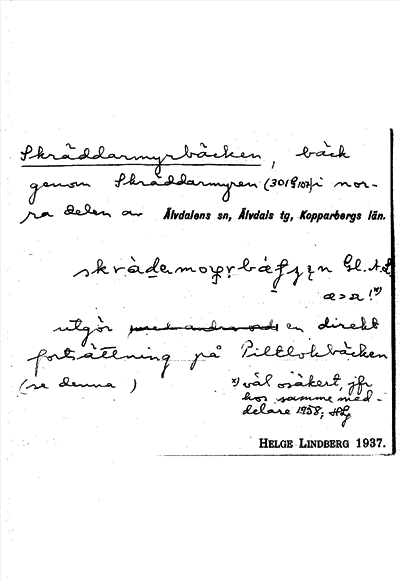 Skräddarmyrbäcken, bäck
genom Skräddarmyren i nor-
ra delen av Älvdalens sn, Älvdals tg, Kopparbergs län.
Gl. A. L.
utgör en direkt
fortsättning på Pilklokbäcken
(se denna )
x) väl osäkert, jfr
hos samme med-
delare 1958; HG
HELGE LINDBERG 1937.